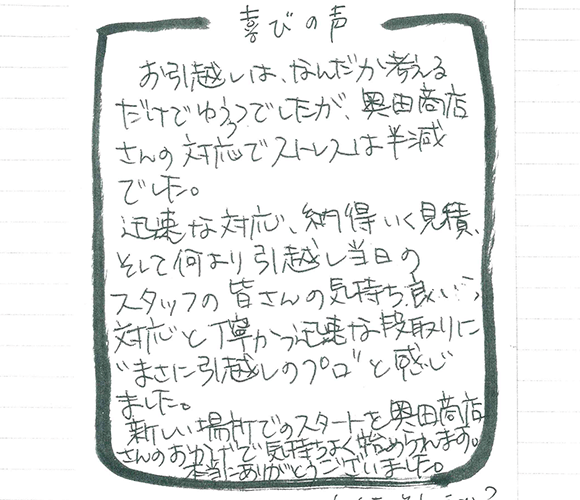 喜びの声
お引越しは、なんだか考える
だけでゆううつでしたが、奥田商店
さんの対応でストレスは半減
でした。
迅速な対応、納得いく見積、
そして何より引越し当日の
スタッフの皆さんの気持ち良い
対応と丁寧かつ迅速な段取りに
"まさに引越しのプロ"と感じ
ました。
新しい場所でのスタートを奥田商店
さんのおかげで気持ちよく始められます。
本当にありがとうございました。